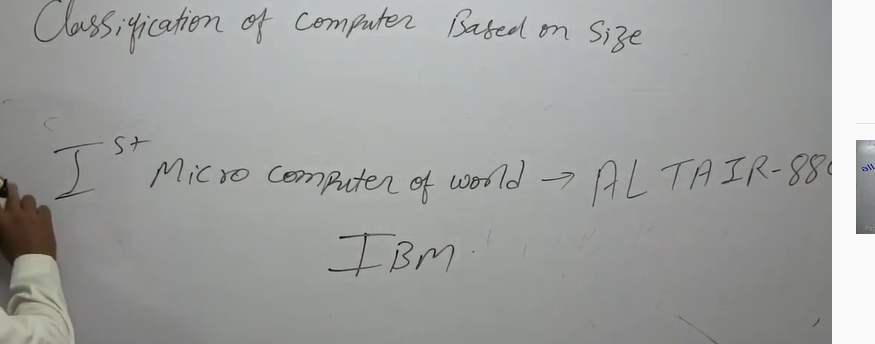 Classification of computer Based on Size
Ist Micro computer of world → ALTAIR-880
IBM
all